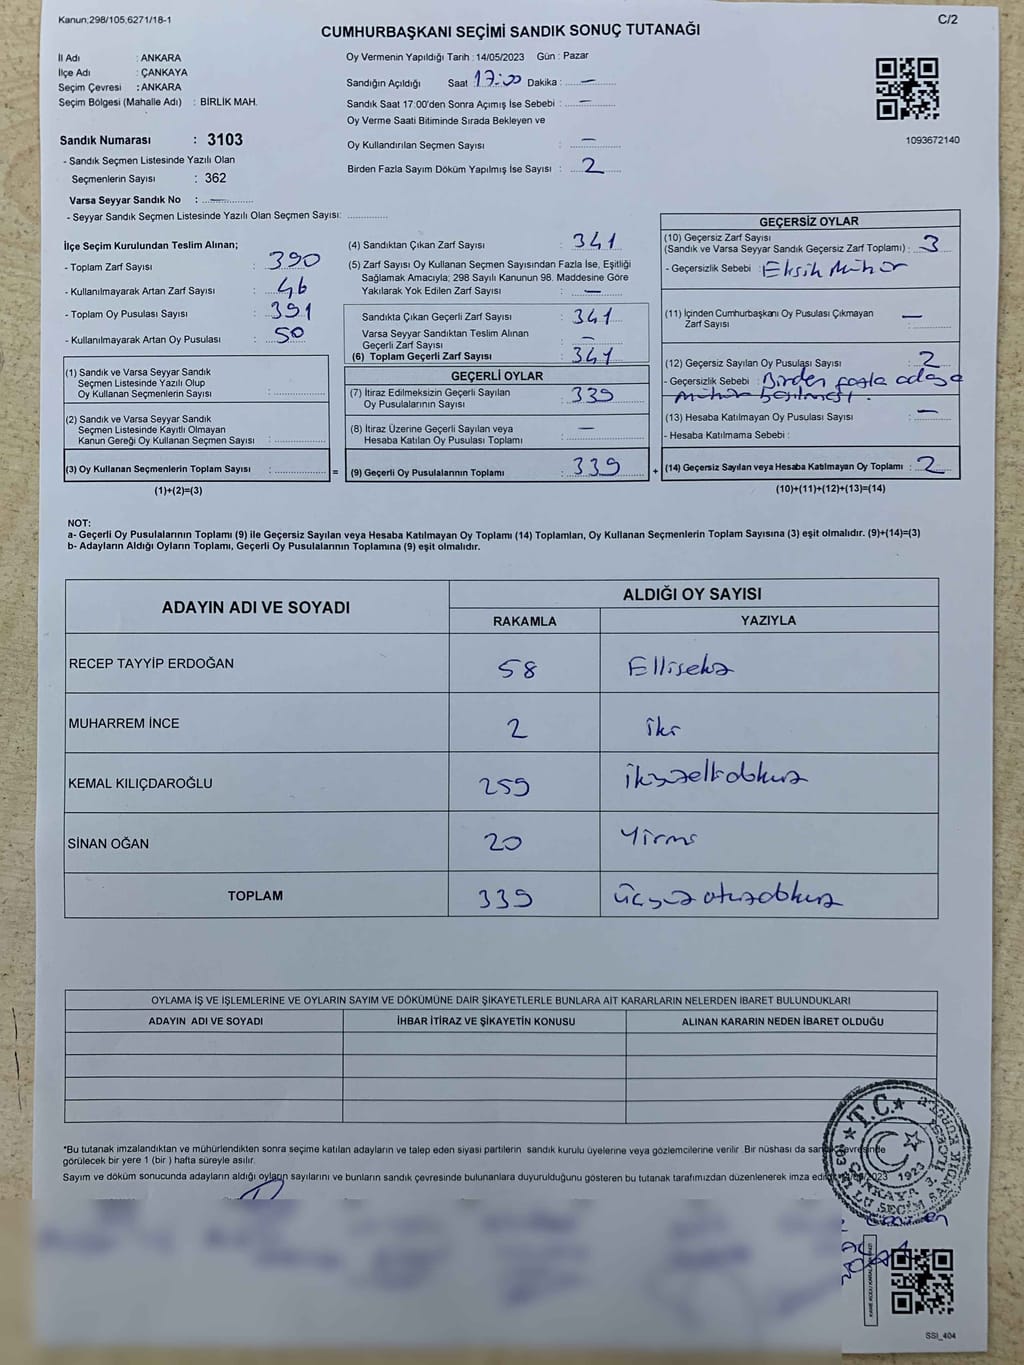 Kanun;298/105,6271/18-1
C/2
CUMHURBAŞKANI SEÇİMİ SANDIK SONUÇ TUTANAĞI
İl Adı : ANKARA
İlçe Adı : ÇANKAYA
Seçim Çevresi : ANKARA
Seçim Bölgesi (Mahalle Adı) : BİRLİK MAH.
Oy Vermenin Yapıldığı Tarih : 14/05/2023 Gün : Pazar
Sandığın Açıldığı Saat 17:00 Dakika : —
Sandık Saat 17:00'den Sonra Açımış İse Sebebi : —
Oy Verme Saati Bitiminde Sırada Bekleyen ve
Oy Kullandırılan Seçmen Sayısı : —
Birden Fazla Sayım Döküm Yapılmış İse Sayısı : 2
1093672140
Sandık Numarası : 3103
- Sandık Seçmen Listesinde Yazılı Olan
Seçmenlerin Sayısı : 362
Varsa Seyyar Sandık No : —
- Seyyar Sandık Seçmen Listesinde Yazılı Olan Seçmen Sayısı:
İlçe Seçim Kurulundan Teslim Alınan;
- Toplam Zarf Sayısı : 390
- Kullanılmayarak Artan Zarf Sayısı : 46
- Toplam Oy Pusulası Sayısı : 391
- Kullanılmayarak Artan Oy Pusulası : 50
(1) Sandık ve Varsa Seyyar Sandık
Seçmen Listesinde Yazılı Olup
Oy Kullanan Seçmenlerin Sayısı :
(2) Sandık ve Varsa Seyyar Sandık
Seçmen Listesinde Kayıtlı Olmayan
Kanun Gereği Oy Kullanan Seçmen Sayısı :
(3) Oy Kullanan Seçmenlerin Toplam Sayısı : =
(1)+(2)=(3)
(4) Sandıktan Çıkan Zarf Sayısı : 341
(5) Zarf Sayısı Oy Kullanan Seçmen Sayısından Fazla İse, Eşitliği
Sağlamak Amacıyla; 298 Sayılı Kanunun 98. Maddesine Göre
Yakılarak Yok Edilen Zarf Sayısı : —
Sandıkta Çıkan Geçerli Zarf Sayısı : 341
Varsa Seyyar Sandıktan Teslim Alınan
Geçerli Zarf Sayısı : —
(6) Toplam Geçerli Zarf Sayısı : 341
GEÇERLİ OYLAR
(7) İtiraz Edilmeksizin Geçerli Sayılan
Oy Pusulalarının Sayısı : 339
(8) İtiraz Üzerine Geçerli Sayılan veya
Hesaba Katılan Oy Pusulası Toplamı : —
(9) Geçerli Oy Pusulalarının Toplamı : 339 +
GEÇERSİZ OYLAR
(10) Geçersiz Zarf Sayısı
(Sandık ve Varsa Seyyar Sandık Geçersiz Zarf Toplamı) : 3
- Geçersizlik Sebebi : Eksik Mühür
(11) İçinden Cumhurbaşkanı Oy Pusulası Çıkmayan
Zarf Sayısı : —
(12) Geçersiz Sayılan Oy Pusulası Sayısı : 2
- Geçersizlik Sebebi : Birden fazla adaya
mühür basılması.
(13) Hesaba Katılmayan Oy Pusulası Sayısı : —
- Hesaba Katılmama Sebebi :
(14) Geçersiz Sayılan veya Hesaba Katılmayan Oy Toplamı : 2
(10)+(11)+(12)+(13)=(14)
NOT:
a- Geçerli Oy Pusulalarının Toplamı (9) ile Geçersiz Sayılan veya Hesaba Katılmayan Oy Toplamı (14) Toplamları, Oy Kullanan Seçmenlerin Toplam Sayısına (3) eşit olmalıdır. (9)+(14)=(3)
b- Adayların Aldığı Oyların Toplamı, Geçerli Oy Pusulalarının Toplamına (9) eşit olmalıdır.
ADAYIN ADI VE SOYADI
ALDIĞI OY SAYISI
RAKAMLA YAZIYLA
RECEP TAYYİP ERDOĞAN 58 Ellisekiz
MUHARREM İNCE 2 iki
KEMAL KILIÇDAROĞLU 259 ikiyüzellidokuz
SİNAN OĞAN 20 Yirmi
TOPLAM 339 üçyüzotuzdokuz
OYLAMA İŞ VE İŞLEMLERİNE VE OYLARIN SAYIM VE DÖKÜMÜNE DAİR ŞİKAYETLERLE BUNLARA AİT KARARLARIN NELERDEN İBARET BULUNDUKLARI
ADAYIN ADI VE SOYADI İHBAR İTİRAZ VE ŞİKAYETİN KONUSU ALINAN KARARIN NEDEN İBARET OLDUĞU
*Bu tutanak imzalandıktan ve mühürlendikten sonra seçime katılan adayların ve talep eden siyasi partilerin sandık kurulu üyelerine veya gözlemcilerine verilir Bir nüshası da sandık çevresinde
görülecek bir yere 1 (bir ) hafta süreyle asılır.
Sayım ve döküm sonucunda adayların aldığı oyların sayılarını ve bunların sandık çevresinde bulunanlara duyurulduğunu gösteren bu tutanak tarafımızdan düzenlenerek imza
T.C.
ÇANKAYA 3. İLÇE
1923
SSI_404